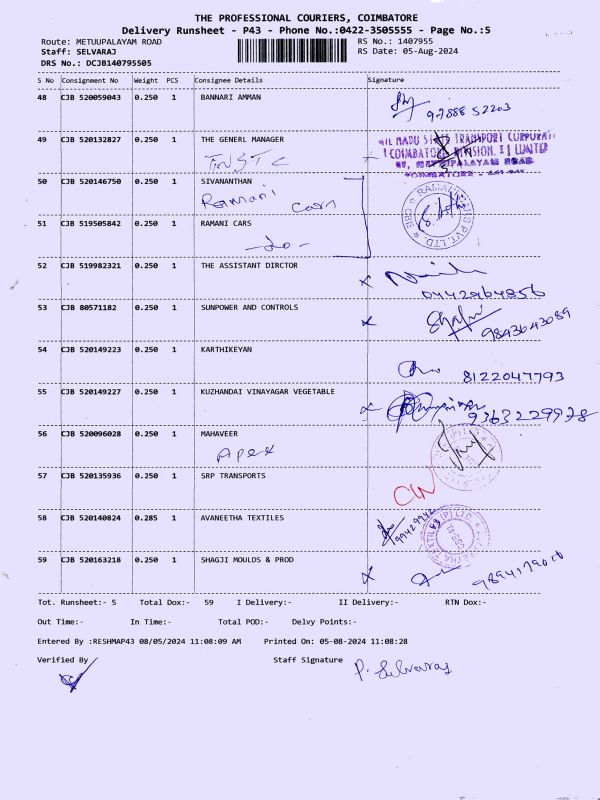 THE PROFESSIONAL COURIERS, COIMBATORE
Delivery Runsheet - P43 - Phone No.:0422-3505555 - Page No.:5
Route: METUUPALAYAM ROAD RS No.: 1407955
Staff: SELVARAJ RS Date: 05-Aug-2024
DRS No.: DCJB140795505
S No Consignment No Weight PCS Consignee Details Signature
48 CJB 520059043 0.250 1 BANNARI AMMAN
97888 52203
49 CJB 520132827 0.250 1 THE GENERL MANAGER
TNSTC
50 CJB 520146750 0.250 1 SIVANANTHAN
Ramani Cars
51 CJB 519505842 0.250 1 RAMANI CARS
-do-
52 CJB 519982321 0.250 1 THE ASSISTANT DIRCTOR
0442964856
53 CJB 80571182 0.250 1 SUNPOWER AND CONTROLS
9843643089
54 CJB 520149223 0.250 1 KARTHIKEYAN
8122047793
55 CJB 520149227 0.250 1 KUZHANDAI VINAYAGAR VEGETABLE
9363229978
56 CJB 520096028 0.250 1 MAHAVEER
Apex
57 CJB 520135936 0.250 1 SRP TRANSPORTS
58 CJB 520140824 0.285 1 AVANEETHA TEXTILES
59 CJB 520163218 0.250 1 SHAGJI MOULDS & PROD
Tot. Runsheet:- 5 Total Dox:- 59 I Delivery:- II Delivery:- RTN Dox:-
Out Time:- In Time:- Total POD:- Delvy Points:-
Entered By :RESHMAP43 08/05/2024 11:08:09 AM Printed On: 05-08-2024 11:08:28
Verified By Staff Signature P. Selvaraj